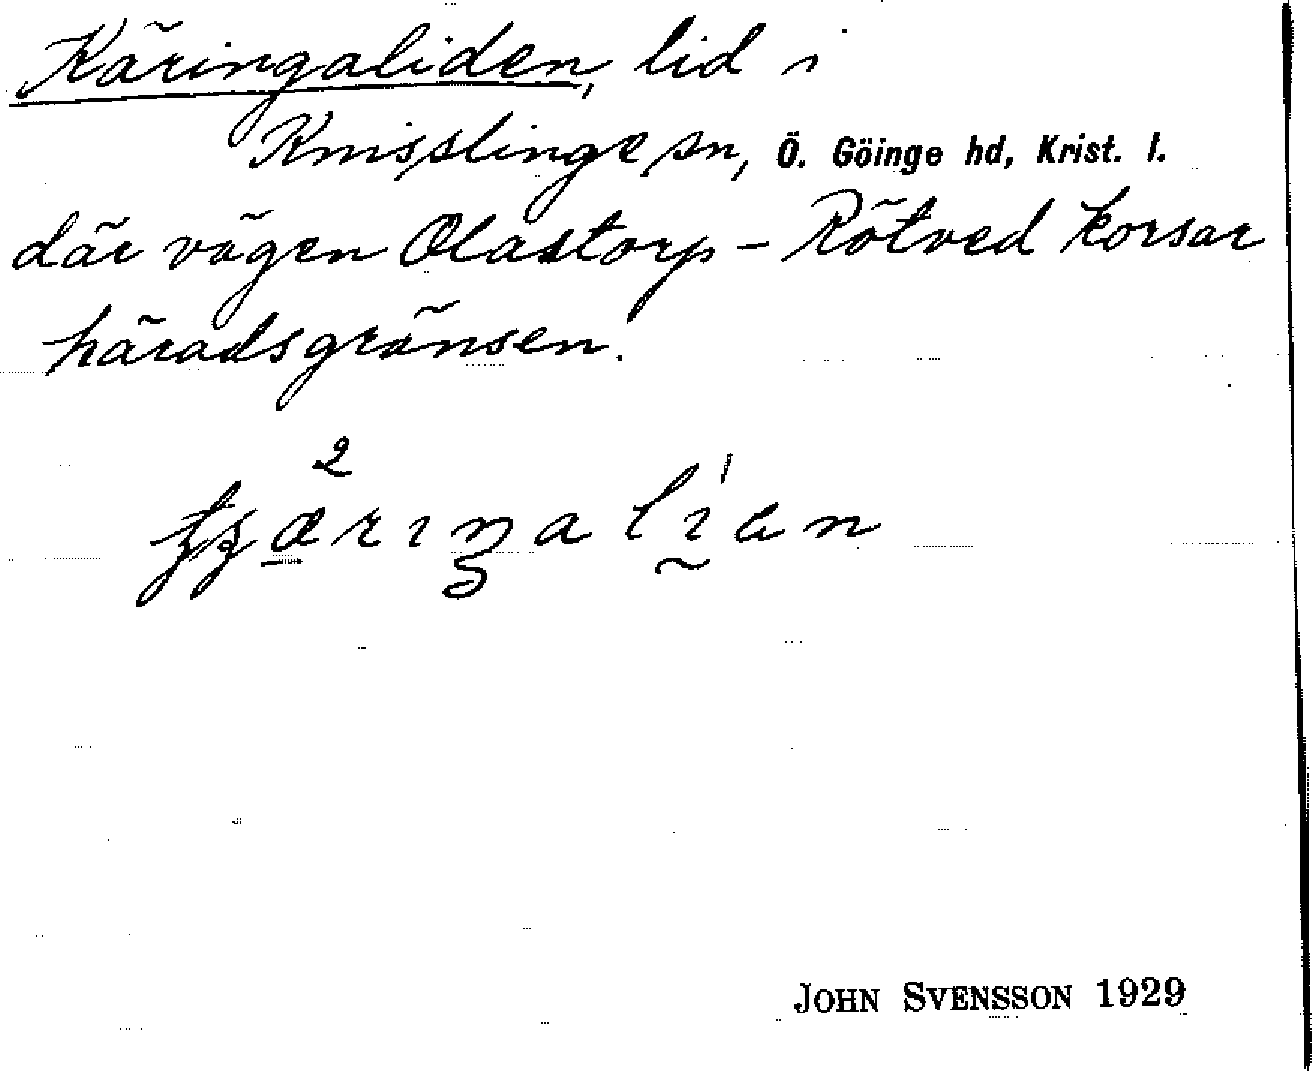 Käringaliden, lid i
Knisslinge sn, Ö. Göinge hd, Krist. l.
där vägen Olastorp – Rötved korsar
häradsgränsen.
JOHN SVENSSON 1929